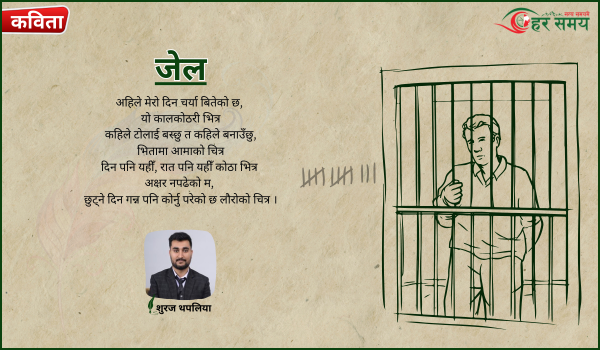 कविता
हर समय
जेल
अहिले मेरो दिन चर्या बितेको छ,
यो कालकोठरी भित्र
कहिले टोलाई बस्छु त कहिले बनाउँछु,
भितामा आमाको चित्र
दिन पनि यहीँ, रात पनि यहीँ कोठा भित्र
अक्षर नपढेको म,
छुट्ने दिन गन्न पनि कोर्नु परेको छ लौरोको चित्र ।
शुरज थपलिया